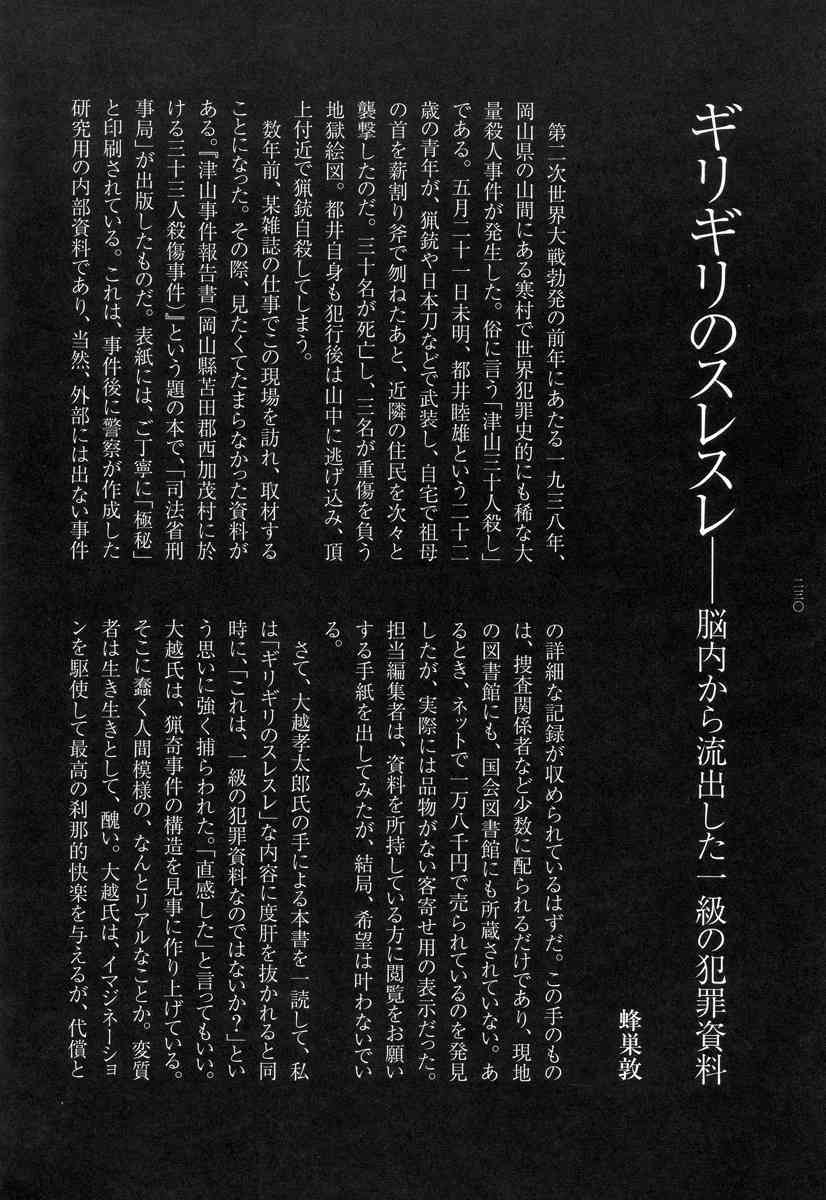 ギリギリのスレスレ──脳内から流出した一級の犯罪資料
蜂巣敦
第二次世界大戦勃発の前年にあたる一九三八年、
岡山県の山間にある寒村で世界犯罪史的にも稀な大
量殺人事件が発生した。俗に言う「津山三十人殺し」
である。五月二十一日未明、都井睦雄という二十二
歳の青年が、猟銃や日本刀などで武装し、自宅で祖母
の首を薪割り斧で刎ねたあと、近隣の住民を次々と
襲撃したのだ。三十名が死亡し、三名が重傷を負う
地獄絵図。都井自身も犯行後は山中に逃げ込み、頂
上付近で猟銃自殺してしまう。
数年前、某雑誌の仕事でこの現場を訪れ、取材する
ことになった。その際、見たくてたまらなかった資料が
ある。『津山事件報告書（岡山縣苫田郡西加茂村に於
ける三十三人殺傷事件）』という題の本で、「司法省刑
事局」が出版したものだ。表紙には、ご丁寧に「極秘」
と印刷されている。これは、事件後に警察が作成した
研究用の内部資料であり、当然、外部には出ない事件
の詳細な記録が収められているはずだ。この手のもの
は、捜査関係者など少数に配られるだけであり、現地
の図書館にも、国会図書館にも所蔵されていない。あ
るとき、ネットで一万八千円で売られているのを発見
したが、実際には品物がない客寄せ用の表示だった。
担当編集者は、資料を所持している方に閲覧をお願い
する手紙を出してみたが、結局、希望は叶わないでい
る。
さて、大越孝太郎氏の手による本書を一読して、私
は「ギリギリのスレスレ」な内容に度肝を抜かれると同
時に、「これは、一級の犯罪資料なのではないか？」とい
う思いに強く捕らわれた。「直感した」と言ってもいい。
大越氏は、猟奇事件の構造を見事に作り上げている。
そこに蠢く人間模様の、なんとリアルなことか。変質
者は生き生きとして、醜い。大越氏は、イマジネーショ
ンを駆使して最高の刹那的快楽を与えるが、代償と
二三〇